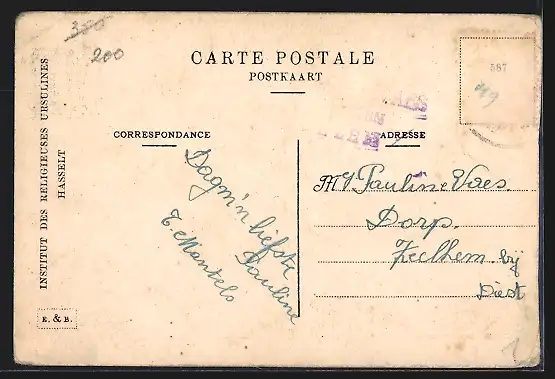 300
200
CARTE POSTALE
POSTKAART
587
119
CORRESPONDANCE
ADRESSE
INSTITUT DES RELIGIEUSES URSULINES
HASSELT
E. & B.
Dag m'n liefste
Pauline
T. Mantels
Pauline Vaes.
Dorp.
Zeelhem. bij
Diest